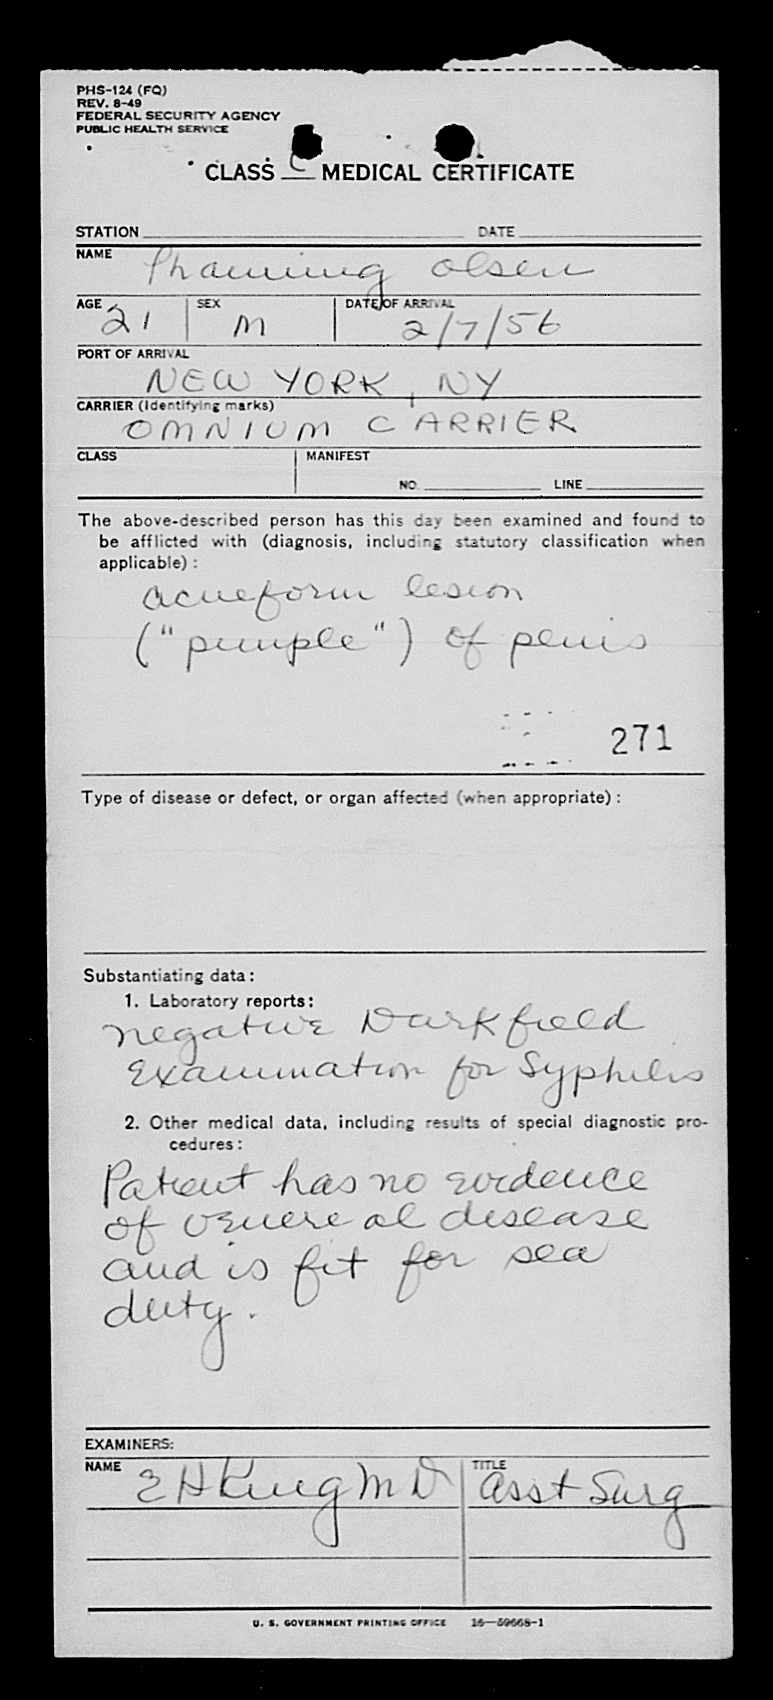 PHS-124 (FQ)
REV. 8-49
FEDERAL SECURITY AGENCY
PUBLIC HEALTH SERVICE
CLASS C MEDICAL CERTIFICATE
STATION DATE
NAME Phanning Olsen
AGE 21 SEX M DATE OF ARRIVAL 2/7/56
PORT OF ARRIVAL
NEW YORK, NY
CARRIER (Identifying marks)
OMNIUM CARRIER
CLASS MANIFEST
NO. LINE
The above-described person has this day been examined and found to
be afflicted with (diagnosis, including statutory classification when
applicable) :
acneform lesion
("pimple") of penis
271
Type of disease or defect, or organ affected (when appropriate) :
Substantiating data :
1. Laboratory reports :
negative Darkfield
Examination for Syphilis
2. Other medical data, including results of special diagnostic pro-
cedures :
Patient has no evidence
of venereal disease
and is fit for sea
duty.
EXAMINERS:
NAME E H King M D TITLE Asst Surg
U. S. GOVERNMENT PRINTING OFFICE 16—59668-1